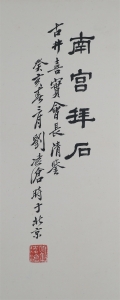 南宫拜石
古井喜實會長清鉴
癸亥春三月劉炳森時于北京